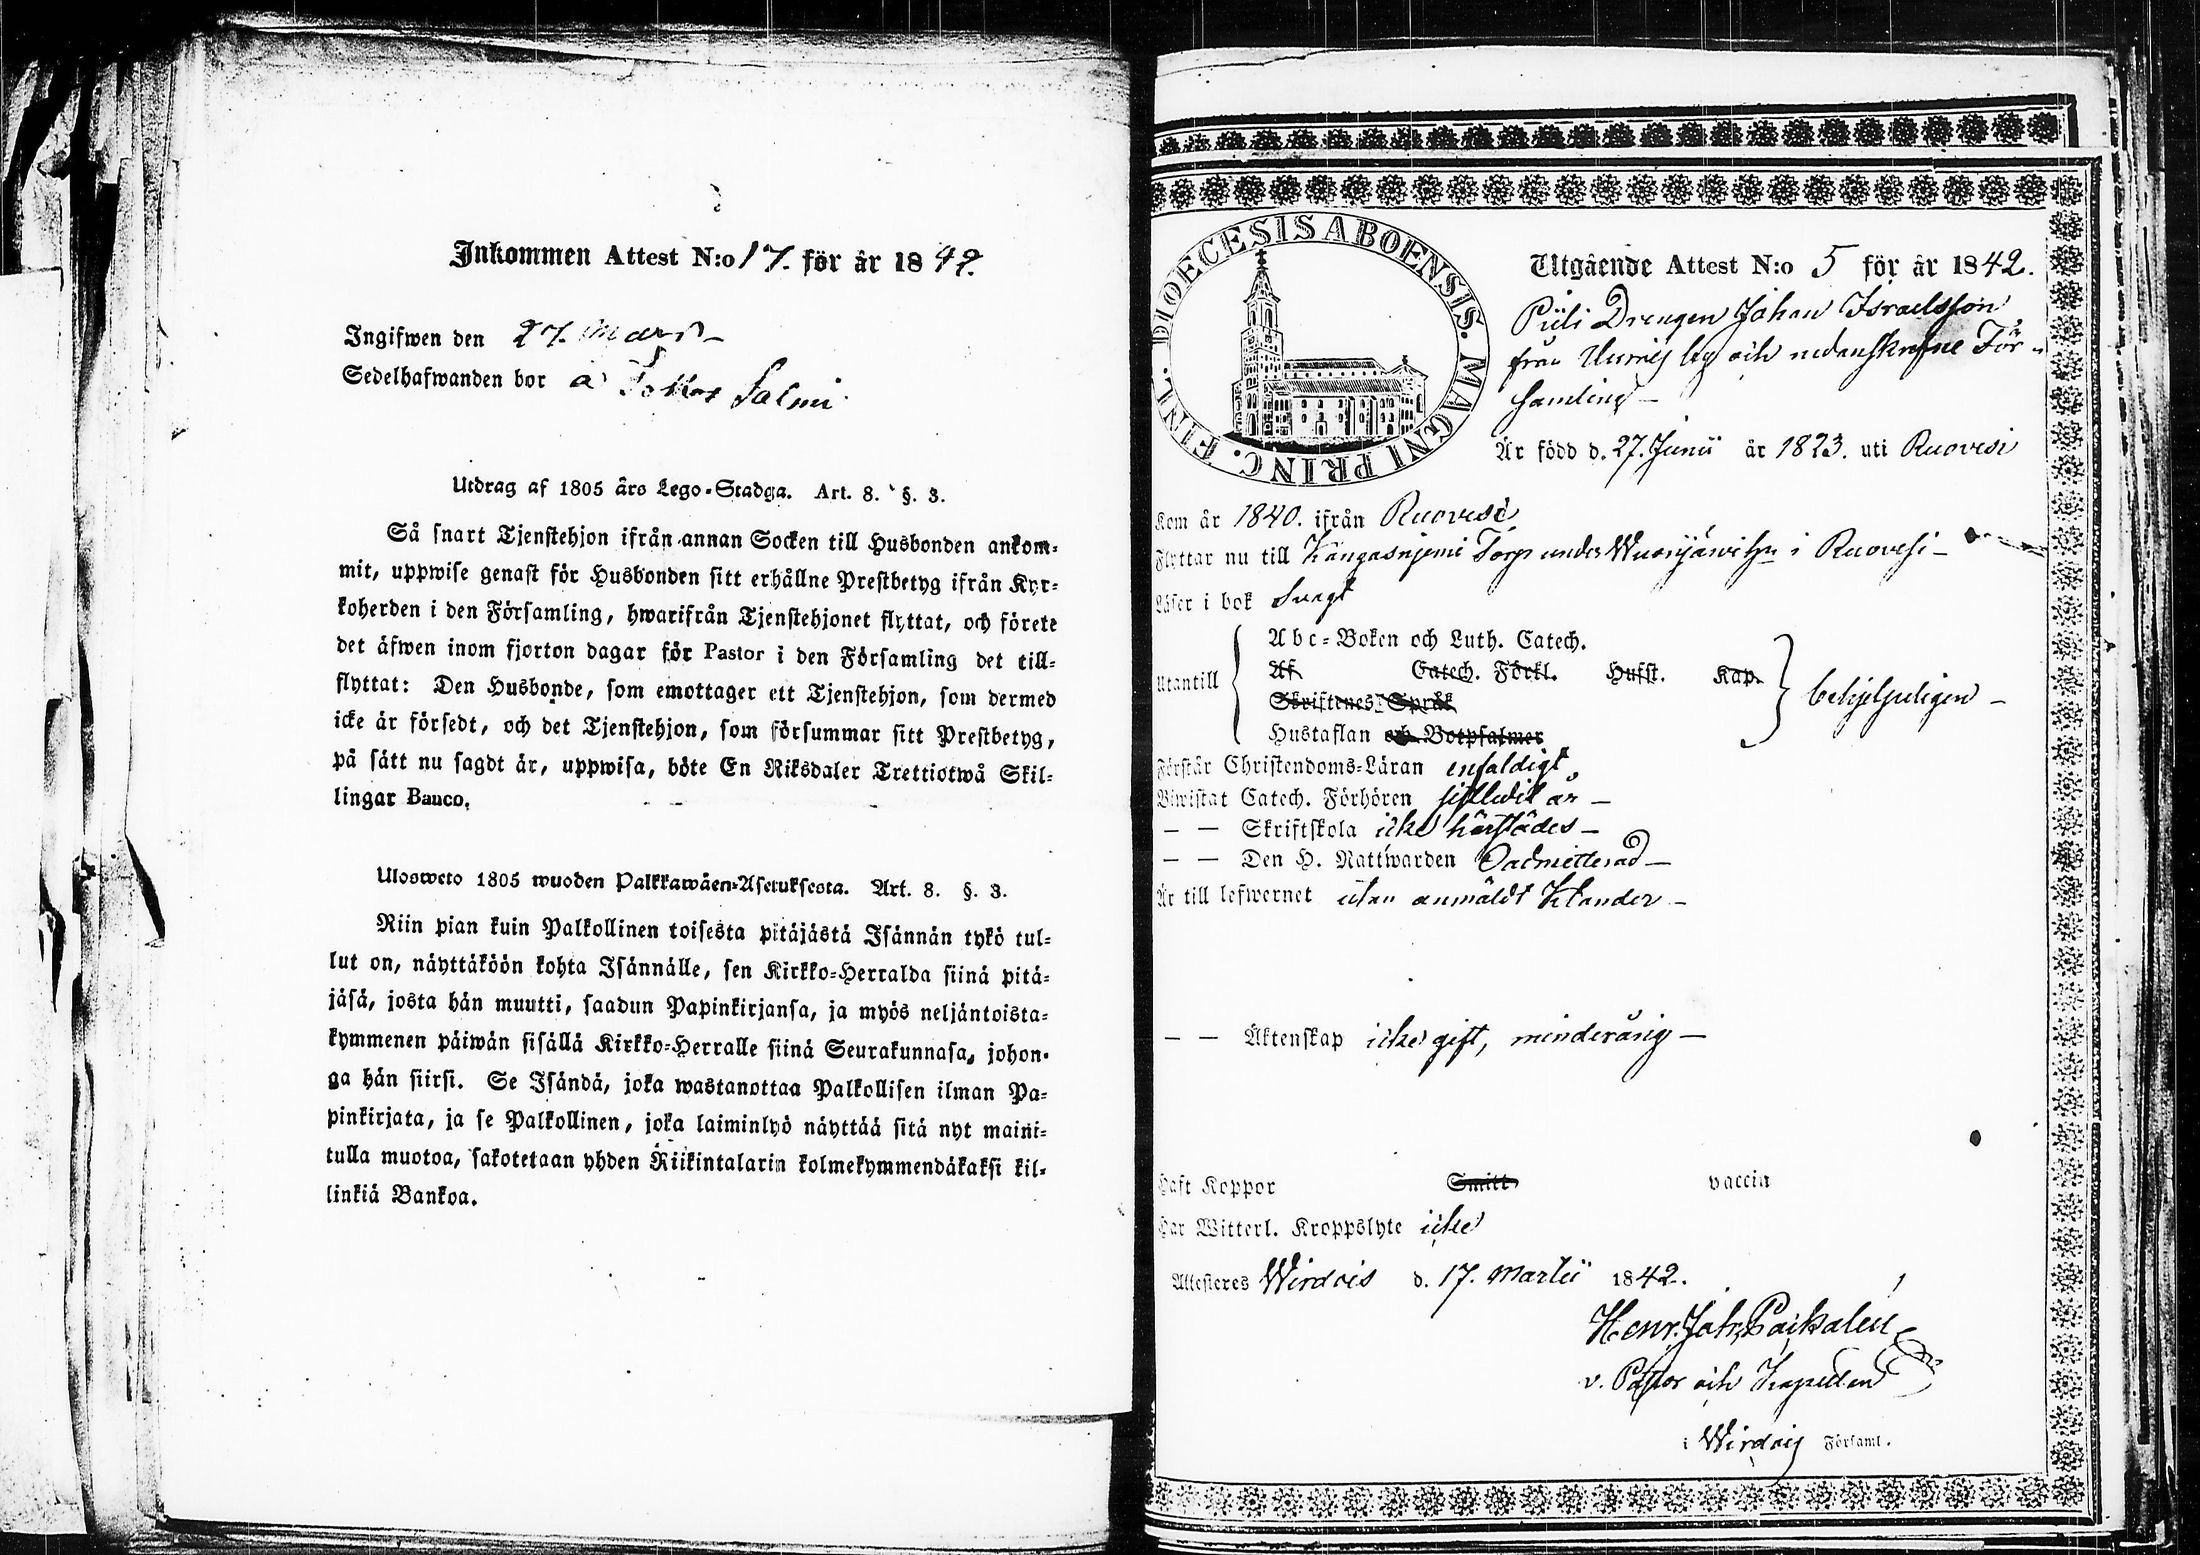 Inkommen Attest N:o 17. för år 1842.
Ingifwen den 27. Mars
Sedelhafwanden bor å Salmi
Utdrag af 1805 års Lego-Stadga. Art. 8. §. 3.
Så snart Tjenstehjon ifrån annan Socken till Husbonden ankom-
mit, uppwise genast för Husbonden sitt erhållne Prestbetyg ifrån Kyr-
koherden i den Församling, hwarifrån Tjenstehjonet flyttat, och förete
det äfwen inom fjorton dagar för Pastor i den Församling det till-
flyttat: Den Husbonde, som emottager ett Tjenstehjon, som dermed
icke är försedt, och det Tjenstehjon, som försummar sitt Prestbetyg,
på sätt nu sagdt är, uppwisa, böte En Riksdaler Trettiotwå Skil-
lingar Banco.
Ulosweto 1805 wuoden Palkkawäen-Asetuksesta. Art. 8. §. 3.
Niin pian kuin Palkollinen toisesta pitäjästä Isännän tykö tul-
lut on, näyttäköön kohta Isännälle, sen Kirkko-Herralda siinä pitä-
jäsä, josta hän muutti, saadun Papinkirjansa, ja myös neljäntoista-
kymmenen päiwän sisällä Kirkko-Herralle siinä Seurakunnasa, johon-
ga hän siirsi. Se Isändä, joka wastanottaa Palkollisen ilman Pa-
pinkirjata, ja se Palkollinen, joka laiminlyö näyttää sitä nyt maini-
tulla muotoa, sakotetaan yhden Riikintalarin kolmekymmendäkaksi kil-
linkiä Bankoa.
DIOECESIS ABOENSIS. MAGNI PRINC. FINL.
Utgående Attest N:o 5 för år 1842.
Piili Drengen Johan Israelsson
från by och nedanskrefne För-
samling
Är född d. 27. Junii år 1823. uti Ruovesi
Kom år 1840. ifrån Ruovesi
Flyttar nu till Kangasnjemi Torp under i Ruovesi
Läser i bok Svagt
Utantill
Abc-Boken och Luth. Catech.
Af Catech. Förkl. Husst. Kap.
Skriftenes Språk
Hustaflan och Botpsalmer
behjelpeligen
Förstår Christendoms-Läran enfaldigt
Biwistat Catech. Förhören sistledit år
— — Skriftskola icke härstädes
— — Den H. Nattwarden Oadmitterad
Är till lefwernet utan anmäldt klander
— — Äktenskap icke gift, minderårig
Haft Koppor Smitt vaccin
Har Witterl. Kroppslyte icke
Attesteres Wirdois d. 17. Martii 1842.
Henr. Joh.
v. Pastor och Kapellan
i Wirdois Församl.